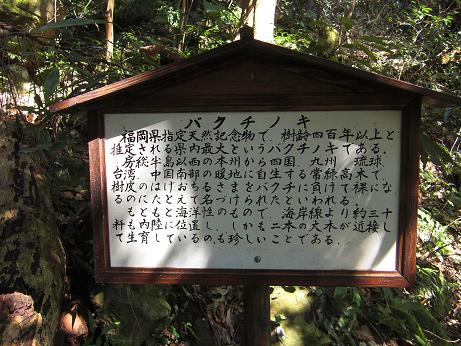 バクチノキ
福岡県指定天然記念物で、樹齢四百年以上と
推定される県内最大というバクチノキである。
房総半島以西の本州から四国、九州、琉球、
台湾、中国南部の暖地に自生する常緑高木で、
樹皮のはげおちるさまをバクチに負けて裸にな
るのにたとえて名づけられたといわれる。
もともと海洋性のもので、海岸線より約三十
料も内陸に位置し、しかも二本の大木が近接し
て生育しているのも珍しいことである。